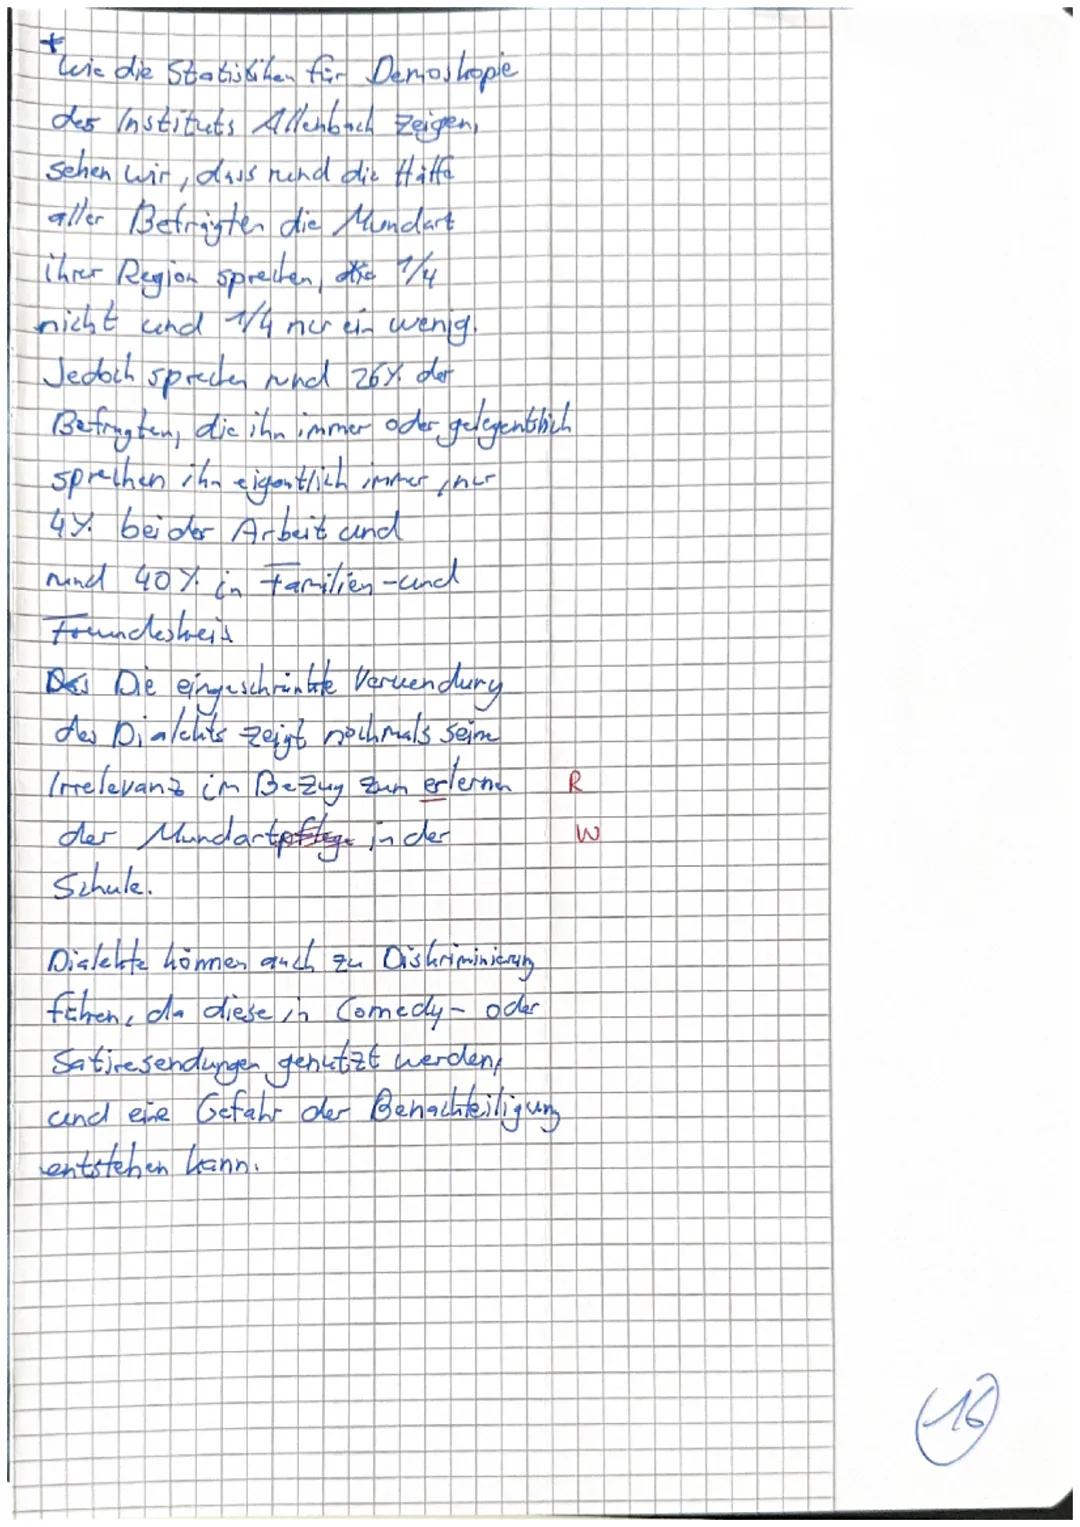 +
Wie die Statistiken für Demoskopie
des Instituts Allenbach zeigen,
sehen wir, dass rund die Hälfte
aller Befragten die Mundart
ihrer Region sprechen, 1/4
nicht und 1/4 nur ein wenig.
Jedoch sprechen rund 26% der
Befragten, die ihn immer oder gelegentlich
sprechen ihn eigentlich immer, nur
4% bei der Arbeit und
rund 40% in Familien-und
Freundeskreis
Des Die eingeschränkte Verwendung
des Dialekts zeigt nochmals seine
Irrelevanz im Bezug zum erlernen R
der Mundartpflege in der W
Schule.
Dialekte können auch zu Diskriminierung
führen, da diese in Comedy- oder
Satiresendungen genutzt werden,
und eine Gefahr der Benachteiligung
entstehen kann.
16